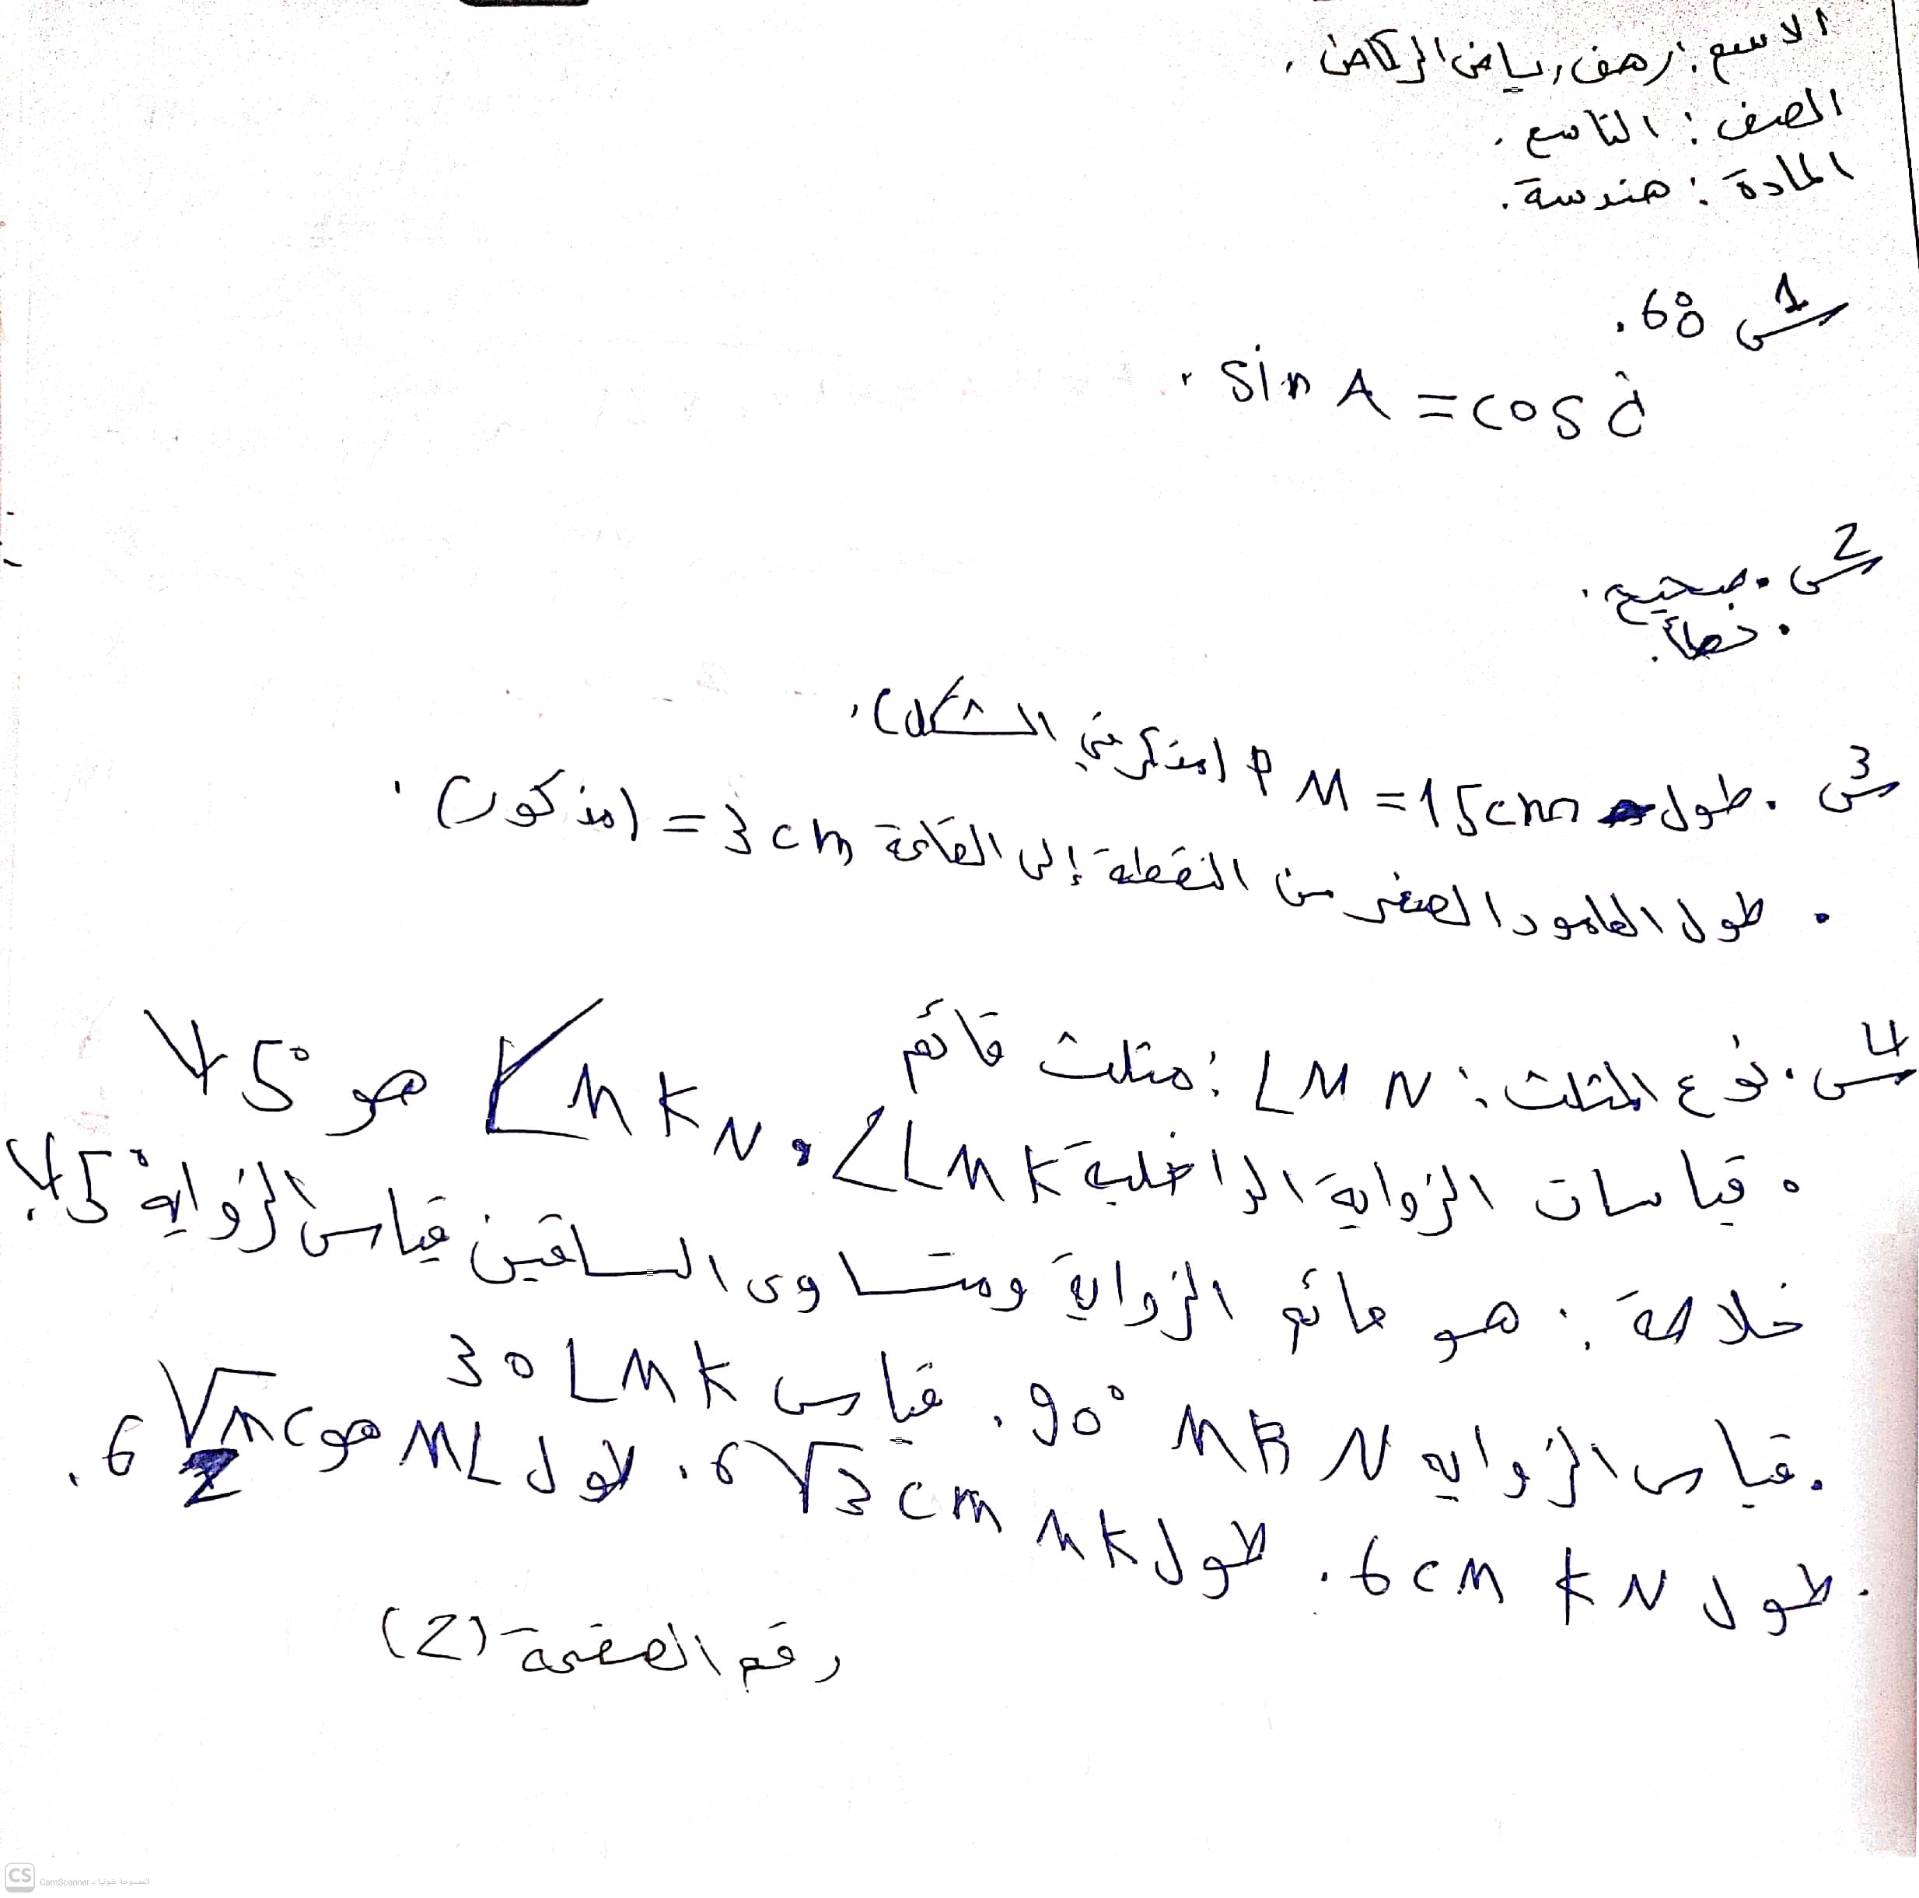 الاسم: رهف رياض الركاض.
الصف: التاسع.
المادة: هندسة.
س1 60°.
sin A = cos
س2 • صحيح.
• خطأ.
س3 • طول PM = 15cm (مذكر في الشكل).
• طول العامود الصغير من النقطة إلى القاعة 3cm = (مذكور).
س4 • نوع المثلث: LMN: مثلث قائم
• قياسات الزواية الداخلية ∠LMK، ∠MKN هو 45°
خلاصة: هو قائم الزواية ومتساوى الساقين قياس الزواية 45°.
• قياس الزوايه MKN 90°. قياس LMK 30
• طول KN 6cm. طول MK 6√3 cm. طول ML هو 6√2 cm.
رقم الصفحة (2)
CS CamScanner الممسوحة ضوئيا بـ